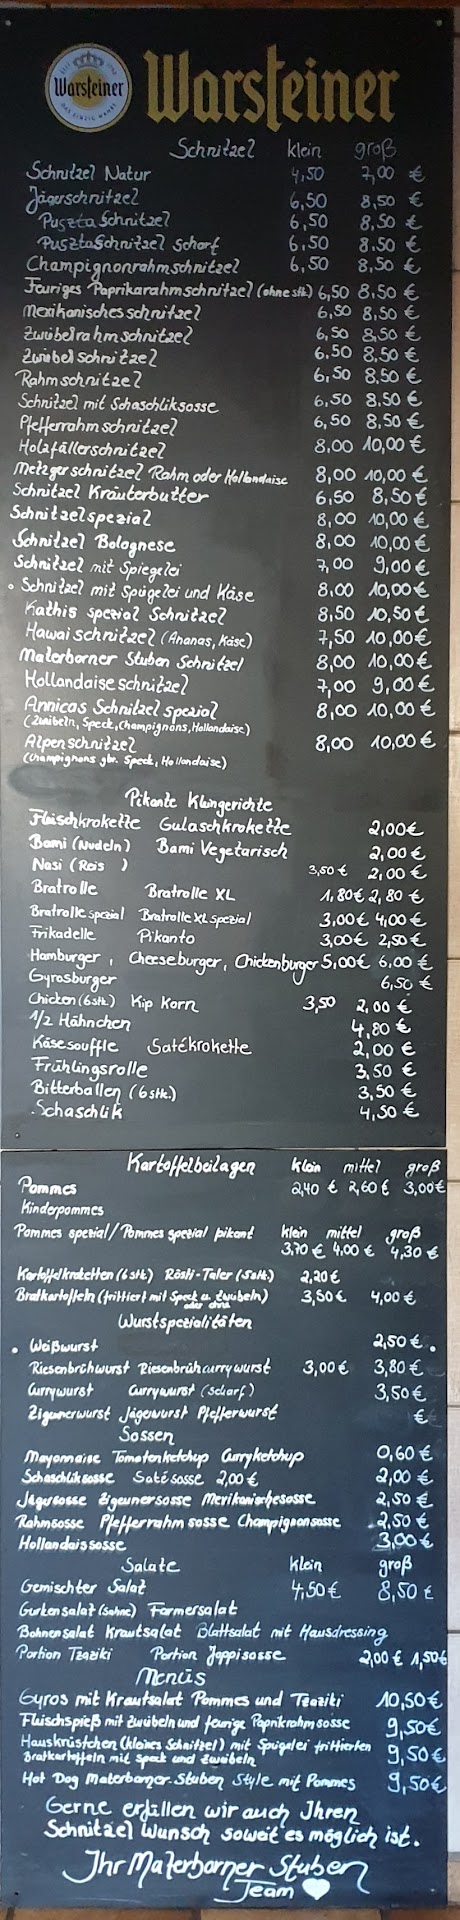 Warsteiner
DAS EINZIG WAHRE
Warsteiner
Schnitzel klein groß
Schnitzel Natur 4,50 7,00 €
Jägerschnitzel 6,50 8,50 €
Puszta Schnitzel 6,50 8,50 €
PusztaSchnitzel Scharf 6,50 8,50 €
Champignonrahmschnitzel 6,50 8,50 €
Feuriges Paprikarahmschnitzel (ohne stk.) 6,50 8,50 €
Mexikanisches schnitzel 6,50 8,50 €
Zwiebelrahmschnitzel 6,50 8,50 €
Zwiebelschnitzel 6,50 8,50 €
Rahmschnitzel 6,50 8,50 €
Schnitzel mit Schaschliksosse 6,50 8,50 €
Pfefferrahmschnitzel 6,50 8,50 €
Holzfällerschnitzel 8,00 10,00 €
Metzgerschnitzel Rahm oder Hollandaise 8,00 10,00 €
Schnitzel Kräuterbutter 6,50 8,50 €
Schnitzelspezial 8,00 10,00 €
Schnitzel Bolognese 8,00 10,00 €
Schnitzel mit Spiegelei 7,00 9,00 €
Schnitzel mit Spiegelei und Käse 8,00 10,00 €
Kathis spezial Schnitzel 8,50 10,50 €
Hawaischnitzel (Ananas, Käse) 7,50 10,00 €
Materborner Stuben Schnitzel 8,00 10,00 €
Hollandaiseschnitzel 7,00 9,00 €
Annicas Schnitzel spezial 8,00 10,00 €
(Zwiebeln, Speck, Champignons, Hollandaise)
Alpenschnitzel 8,00 10,00 €
(Champignons gbr. Speck, Hollandaise)
Pikante Kleingerichte
Fleischkrokette Gulaschkrokette 2,00 €
Bami (Nudeln) Bami Vegetarisch 2,00 €
Nasi (Reis ) 3,50 € 2,00 €
Bratrolle Bratrolle XL 1,80 € 2,80 €
Bratrolle spezial Bratrolle XL spezial 3,00 € 4,00 €
Frikadelle Pikanto 3,00 € 2,50 €
Hamburger, Cheeseburger, Chickenburger 5,00 € 6,00 €
Gyrosburger 6,50 €
Chicken (6 stk.) Kip Korn 3,50 2,00 €
1/2 Hähnchen 4,80 €
Käsesouffle Satékrokette 2,00 €
Frühlingsrolle 3,50 €
Bitterballen (6 stk.) 3,50 €
Schaschlik 4,50 €
Kartoffelbeilagen klein mittel groß
Pommes 2,40 € 2,60 € 3,00 €
Kinderpommes
Pommes spezial/Pommes spezial pikant klein mittel groß
3,70 € 4,00 € 4,30 €
Kartoffelkroketten (6 stk) Rösti-Taler (5 stk.) 2,20 €
Bratkartoffeln (frittiert mit Speck u. Zwiebeln) 3,50 € 4,00 €
oder ohne
Wurstspezialitäten
Weißwurst 2,50 €
Riesenbrühwurst Riesenbrühcurrywurst 3,00 € 3,80 €
Currywurst Currywurst (scharf) 3,50 €
Zigeunerwurst Jägerwurst Pfefferwurst €
Sossen
Mayonnaise Tomatenketchup Curryketchup 0,60 €
Schaschliksosse Satésosse 2,00 € 2,00 €
Jägersosse Zigeunersosse Mexikanischesosse 2,50 €
Rahmsosse Pfefferrahmsosse Champignonsosse 2,50 €
Hollandaissosse 3,00 €
Salate klein groß
Gemischter Salat 4,50 € 8,50 €
Gurkensalat (Sahne) Farmersalat
Bohnensalat Krautsalat Blattsalat mit Hausdressing
Portion Tzaziki Portion Joppisosse 2,00 € 1,50 €
Menüs
Gyros mit Krautsalat Pommes und Tzaziki 10,50 €
Fleischspieß mit Zwiebeln und feurige Paprikrahmsosse 9,50 €
Hauskrüstchen (kleines Schnitzel) mit Spiegelei frittierten 9,50 €
Bratkartoffeln mit speck und Zwiebeln
Hot Dog Materborner-Stuben Style mit Pommes 9,50 €
Gerne erfüllen wir auch Ihren
Schnitzel Wunsch soweit es möglich ist.
Ihr Materborner Stuben
Team